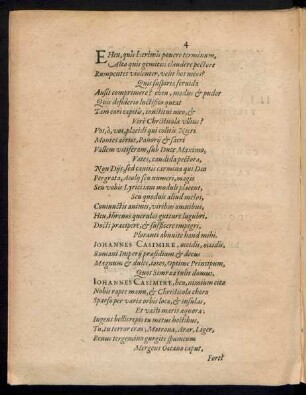 4
EHeu, quis lacrimis ponere terminum,
Alto quis gemitus claudere pectore
Rumpentes violenter, velit hos meos?
Quis suspiria fervida
Ausit comprimere? eheu, modus & pudor
Quis desiderio luctificis queat
Tam cari capitis, constitui meo, &
Verè Christicolæ ullus?
Vos, ô, vos, placidi qui colitis Nicri
Montes aërios, Panorij & sacri
Vallem vitiferam, sub Duce Maximo,
Vates, candida pectora,
Non Dijs, sed canitis carmina qui Dea
Pergrata, Aulæ seu numeri, magis
Seu vobis Lyrici iam moduli placent,
Seu quoduis aliud melos,
Coniunctis animis, viribus omnibus,
Heu, threnos querulos gutture lugubri,
Docti præcipere, & suscipere impegri,
Plorantis abnuite haud mihi.
IOHANNES CASIMIRE, occidis, occidis,
Romani Imperij præsidium & decus
Magnum & dulce, tuos, Optime Principum,
Quot Simeræ tulit domus.
IOHANNES CASIMIRE, heu, nimium citò
Nobis rapte manu, & Christicolæ choro
Sparso per varis orbis loca, & insulas,
Et vasti maris æquora.
Iugens bellicrepis tu metus hostibus,
Tu, tu terror eras, Matrona, Arar, Liger,
Renus tergemino gurgiti spumeum
Mergens Oceano caput.
Forte